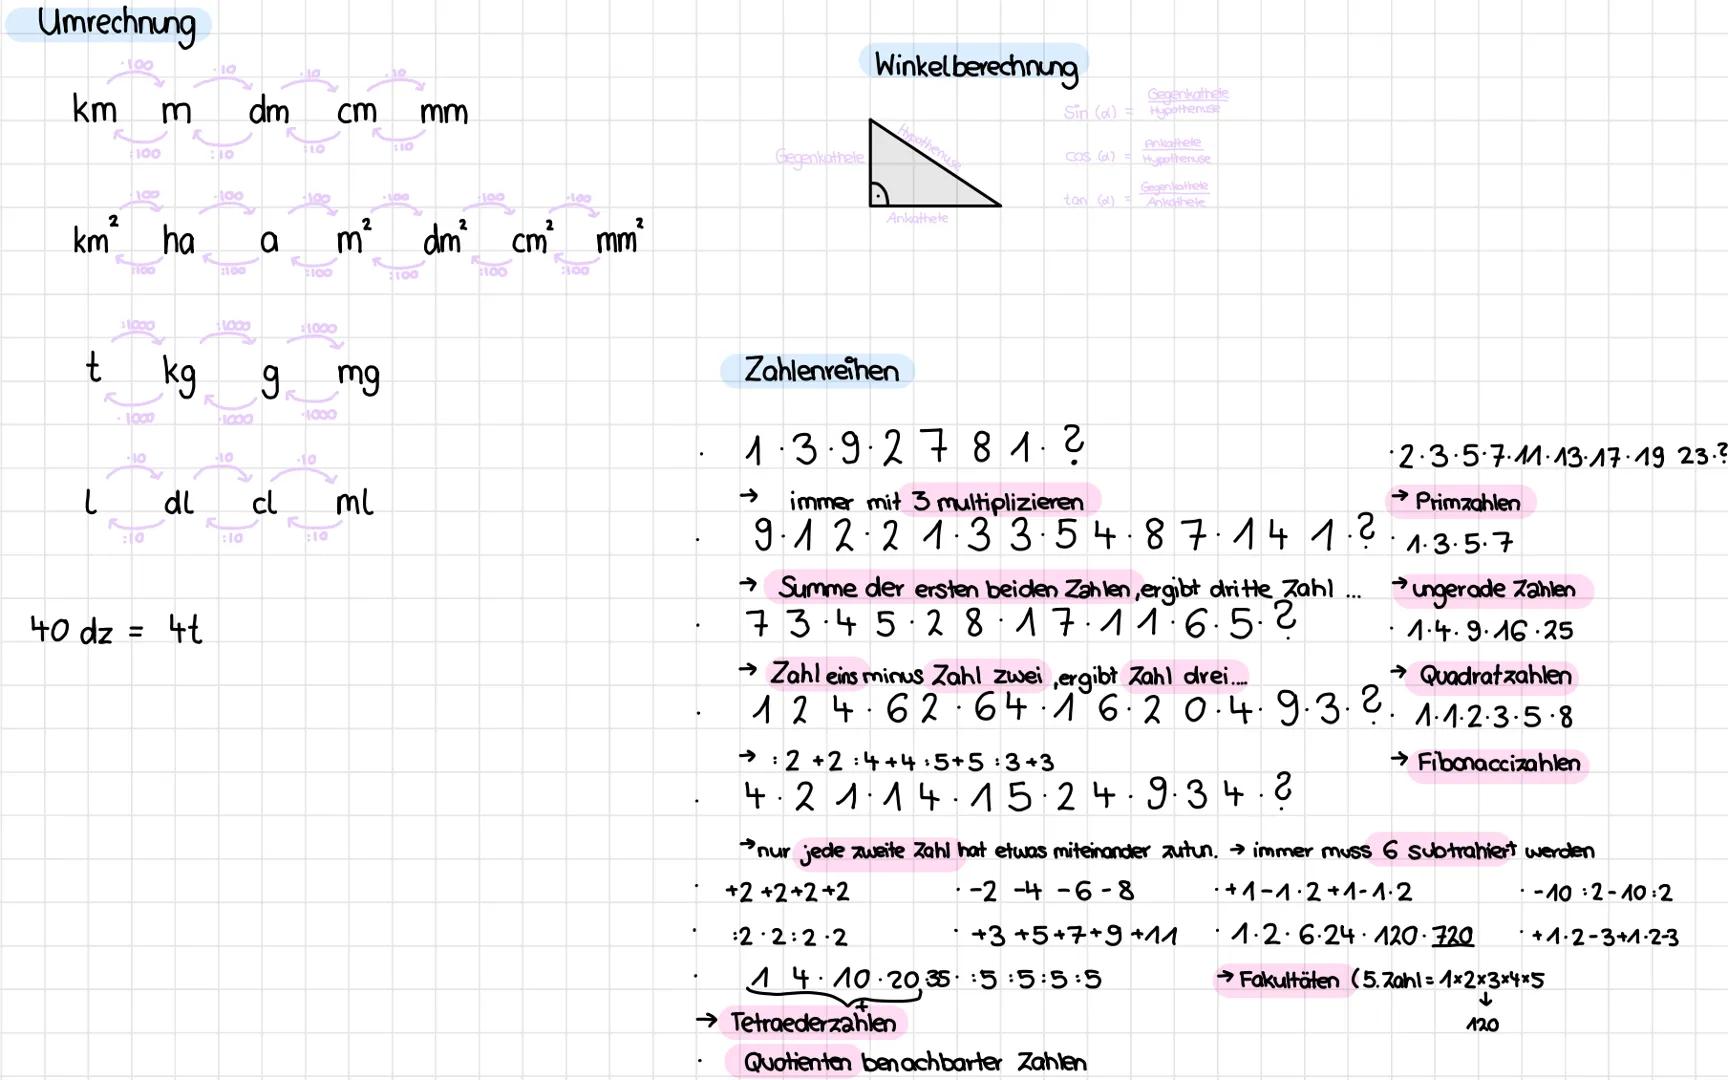 Umrechnung
·100 ·10 ·10 ·10
km m dm cm mm
:100 :10 :10 :10
·100 ·100 ·100 ·100 ·100 ·100
km² ha a m² dm² cm² mm²
:100 :100 :100 :100 :100 :100
:1000 :1000 :1000
t kg g mg
·1000 ·1000 ·1000
·10 ·10 ·10
l dl cl ml
:10 :10 :10
40 dz = 4t
Winkelberechnung
Gegenkathete
Hypothenuse
Ankathete
Sin (α) = Gegenkathete
Hypothenuse
cos (α) = Ankathete
Hypothenuse
tan (α) = Gegenkathete
Ankathete
Zahlenreihen
· 1 · 3 · 9 · 2 7 8 1 · ?
→ immer mit 3 multiplizieren
· 9 · 1 2 · 2 1 · 3 3 · 5 4 · 8 7 · 1 4 1 · ?
→ Summe der ersten beiden Zahlen, ergibt dritte Zahl ...
· 7 3 · 4 5 · 2 8 · 1 7 · 1 1 · 6 · 5 · ?
→ Zahl eins minus Zahl zwei, ergibt Zahl drei....
· 1 2 4 · 6 2 · 6 4 · 1 6 · 2 0 · 4 · 9 · 3 · ?
→ :2 +2 :4 +4 :5 +5 :3 +3
· 4 · 2 1 · 1 4 · 1 5 · 2 4 · 9 · 3 4 · ?
→ nur jede zweite Zahl hat etwas miteinander zutun. → immer muss 6 subtrahiert werden
· 2 · 3 · 5 · 7 · 11 · 13 · 17 · 19 23 · ?
→ Primzahlen
· 1 · 3 · 5 · 7
→ ungerade Zahlen
· 1 · 4 · 9 · 16 · 25
→ Quadratzahlen
· 1 · 1 · 2 · 3 · 5 · 8
→ Fibonaccizahlen
· +2 +2 +2 +2 · -2 -4 -6 -8 · +1 -1 ·2 +1 -1 ·2 · -10 :2 -10 :2
· :2 ·2 :2 ·2 · +3 +5 +7 +9 +11 · 1 · 2 · 6 · 24 · 120 · 720 · +1 ·2 -3 +1 ·2 -3
· 1 4 · 10 · 20 35 · :5 :5 :5 :5 → Fakultäten (5. Zahl = 1×2×3×4×5
+
↓
120
→ Tetraederzahlen
· Quotienten benachbarter Zahlen